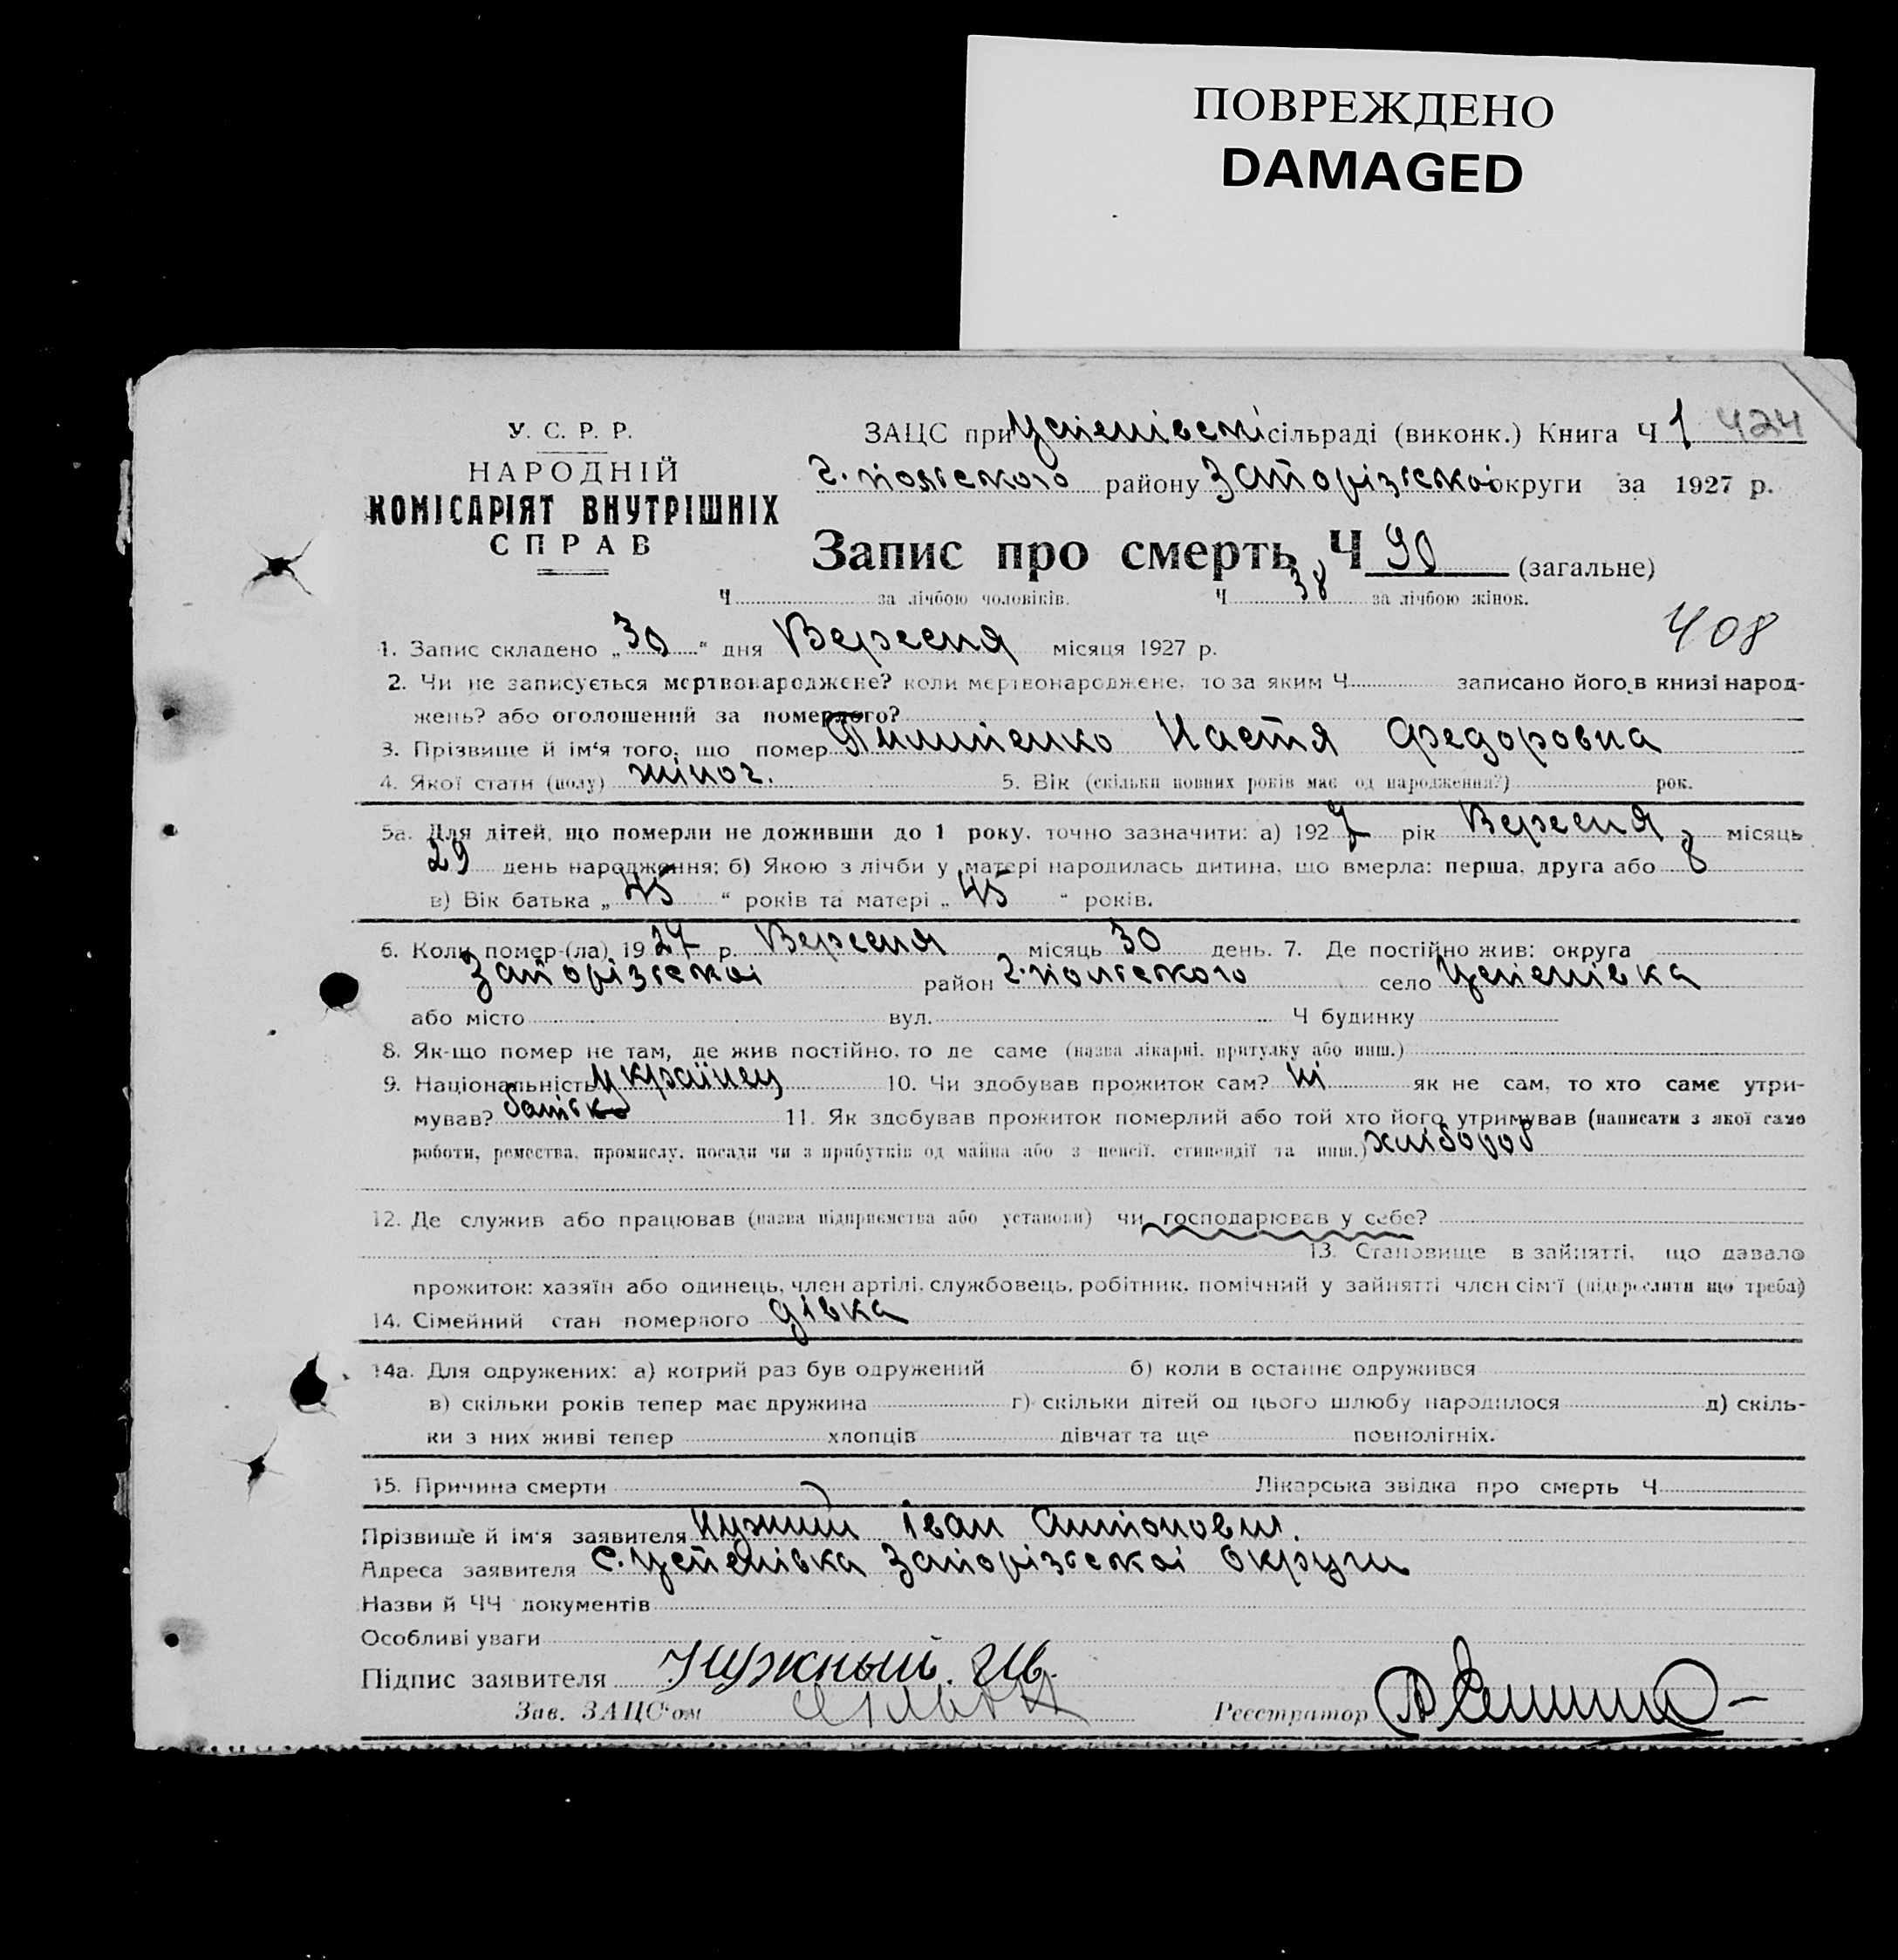 ПОВРЕЖДЕНО
DAMAGED
У. С. Р. Р.
НАРОДНІЙ
КОМІСАРІЯТ ВНУТРІШНІХ
СПРАВ
ЗАЦС при Успенівскі сільраді (виконк.) Книга Ч 1 424
г. польського району Запорізської округи за 1927 р.
Запис про смерть Ч 90 (загальне)
Ч за лічбою чоловіків. Ч 38 за лічбою жінок.
408
1. Запис складено „30“ дня Вересня місяця 1927 р.
2. Чи не записується мертвонароджене? коли мертвонароджене, то за яким Ч записано його в книзі народ-
жень? або оголошений за померлого?
3. Прізвище й ім‘я того, що помер Настя Федоровна
4. Якої стати (полу) жіноч. 5. Вік (скільки повних років має од народження?) рок.
5а. Для дітей, що померли не доживши до 1 року, точно зазначити: а) 1927 рік Вересня місяць
29 день народження; б) Якою з лічби у матері народилась дитина, що вмерла: перша, друга або 8
в) Вік батька „45“ років та матері „45“ років.
6. Коли помер-(ла) 1927 р. Вересня місяць 30 день. 7. Де постійно жив: округа
Запорізскої район г. польського село Успенівка
або місто вул. Ч будинку
8. Як-що помер не там, де жив постійно, то де саме (назва лікарні, притулку або инш.)
9. Національність Українец 10. Чи здобував прожиток сам? ні як не сам, то хто саме утри-
мував? батько 11. Як здобував прожиток померлий або той хто його утримував (написати з якої само
роботи, ремества, промислу, посади чи з прибутків од майна або з пенсії, стипендії та инш.) хлібороб
12. Де служив або працював (назва підприємства або установи) чи господарював у себе?
13. Становище в зайнятті, що давало
прожиток: хазяїн або одинець, член артілі, службовець, робітник, помічний у зайнятті член сім‘ї (підкреслити що треба)
14. Сімейний стан померлого дівка
14а. Для одружених: а) котрий раз був одружений б) коли в останнє одружився
в) скільки років тепер має дружина г) скільки дітей од цього шлюбу народилося д) скіль-
ки з них живі тепер хлопців дівчат та ще повнолітніх.
15. Причина смерти Лікарська звідка про смерть Ч
Прізвище й ім‘я заявителя Нужний Іван Антонович.
Адреса заявителя с. Успенівка Запорізської округи
Назви й ЧЧ документів
Особливі уваги
Підпис заявителя Нужный. Ив.
Зав. ЗАЦС‘ом Реєстратор